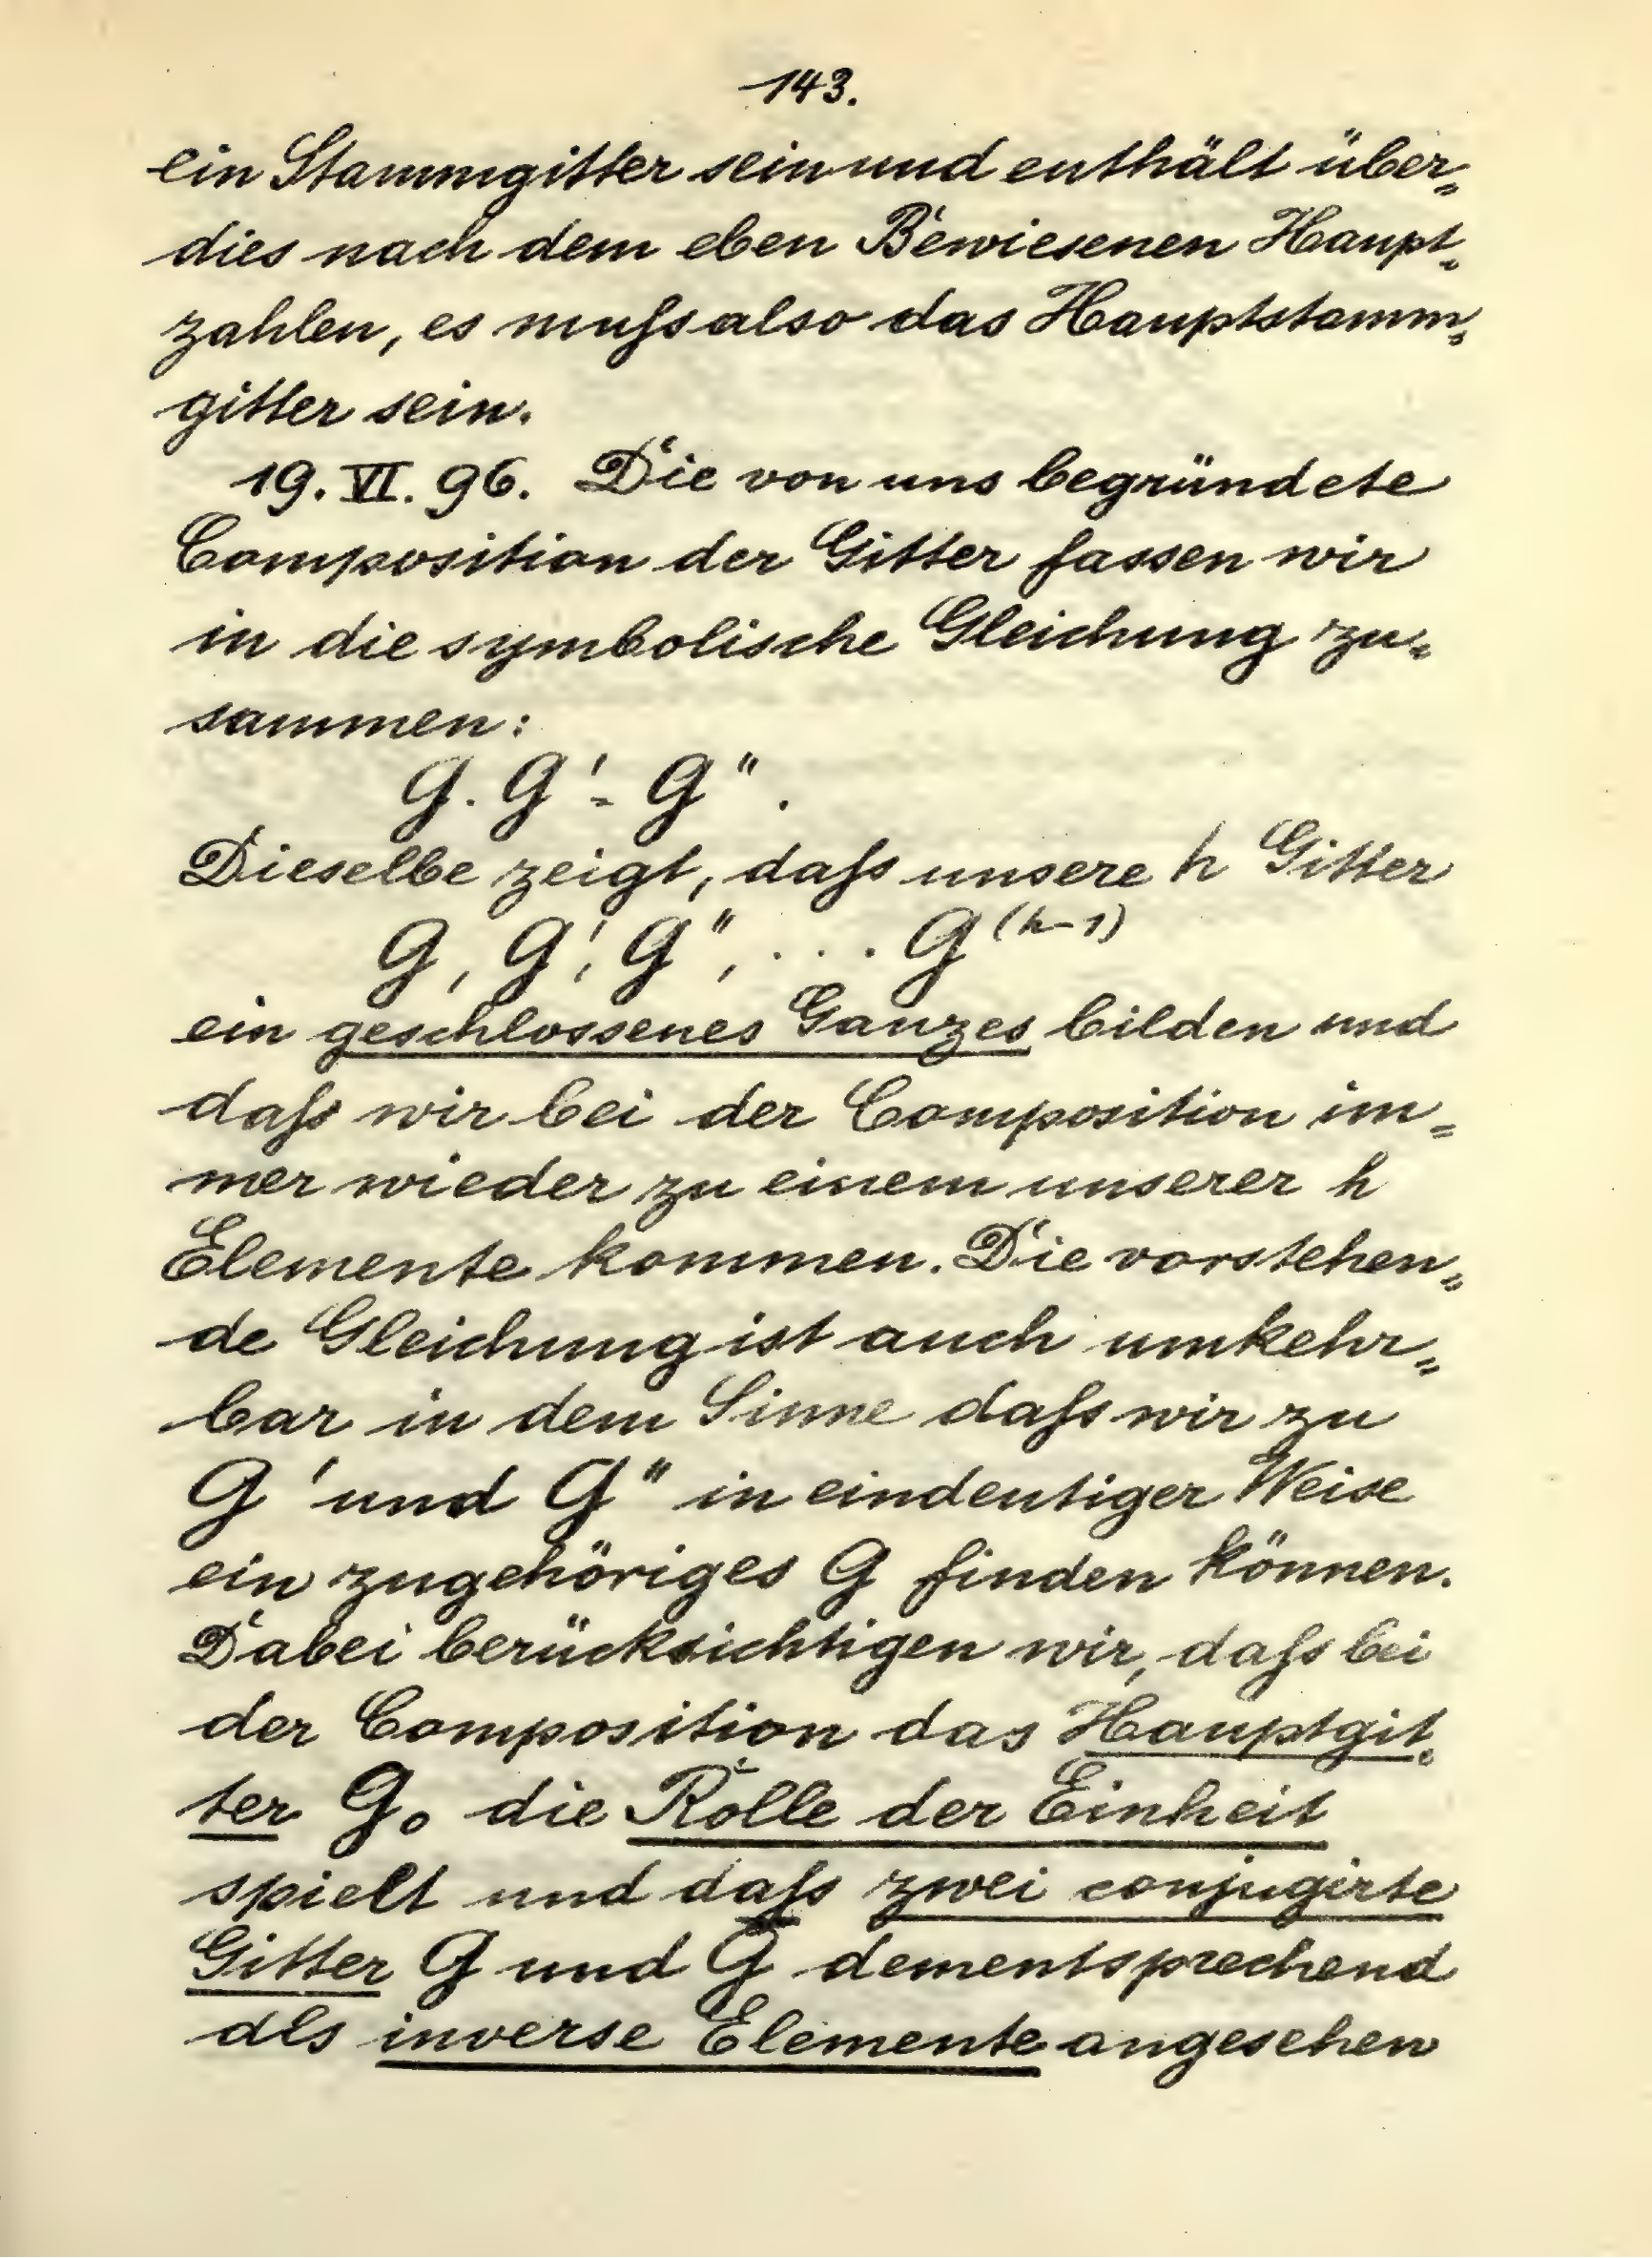 143.
ein Stammgitter sein und enthält über=
dies nach dem eben Bewiesenen Haupt=
zahlen, es muſs also das Hauptstamm=
gitter sein.
19. VI. 96. Die von uns begründete
Composition der Gitter fassen wir
in die symbolische Gleichung zu=
sammen:
G. G' = G''.
Dieselbe zeigt, daſs unsere h Gitter
G, G', G'', . . . G^(h-1)
ein geschlossenes Ganzes bilden und
daſs wir bei der Composition im=
mer wieder zu einem unserer h
Elemente kommen. Die vorstehen=
de Gleichung ist auch umkehr=
bar in dem Sinne daſs wir zu
G' und G'' in eindeutiger Weise
ein zugehöriges G finden können.
Dabei berücksichtigen wir, daſs bei
der Composition das Hauptgit=
ter G₀ die Rolle der Einheit
spielt und daſs zwei conjugirte
Gitter G und G̅ dementsprechend
als inverse Elemente angesehen